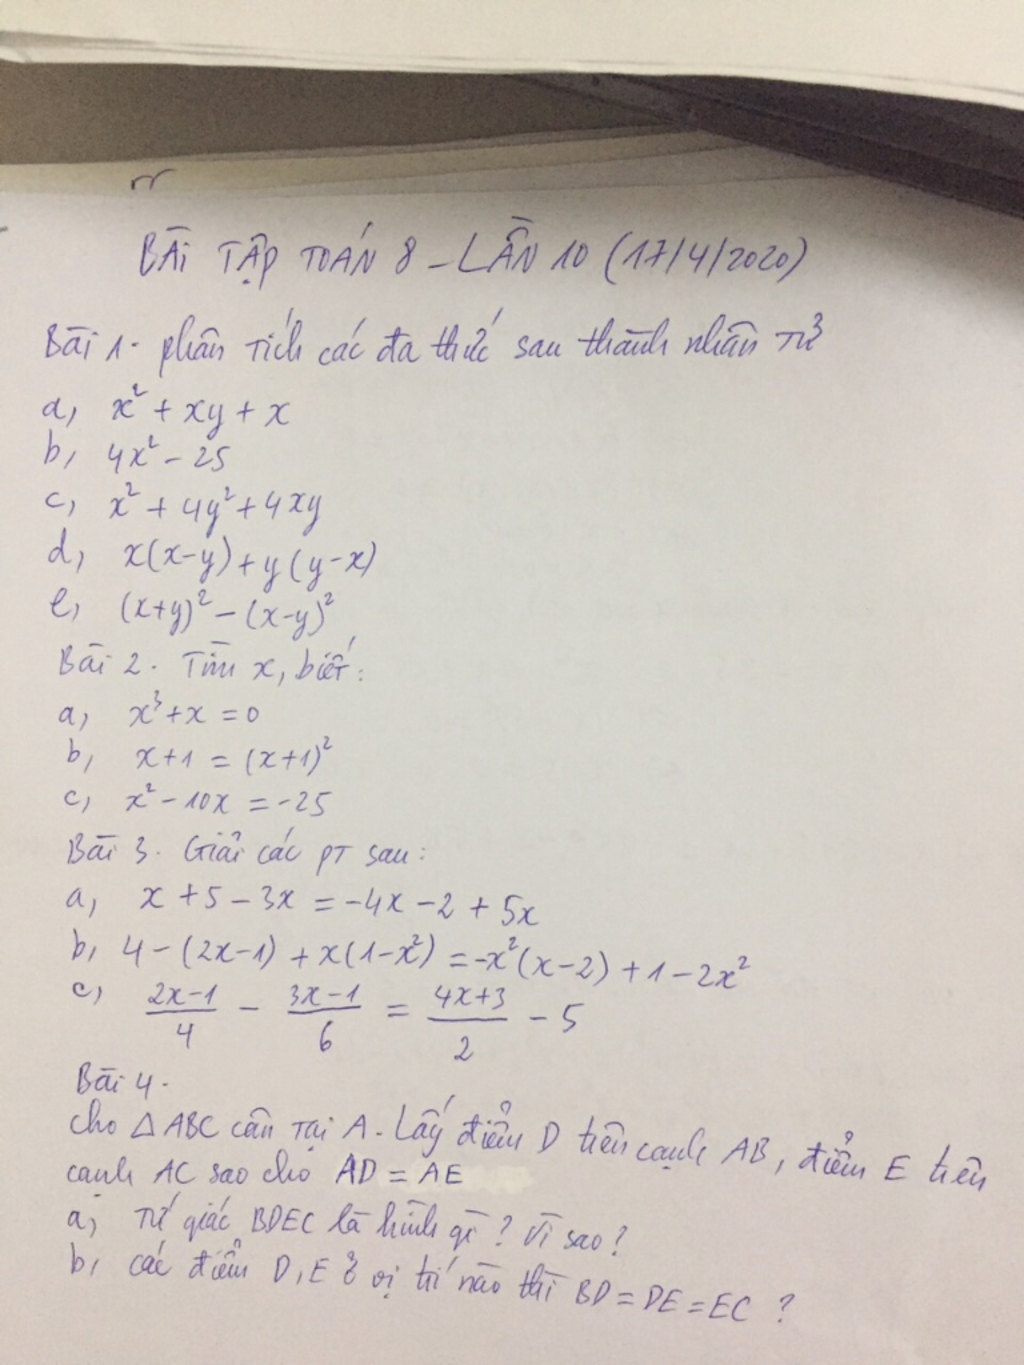 BÀI TẬP TOÁN 8 - LẦN 10 (17/4/2020)
Bài 1. phân tích các đa thức sau thành nhân tử
a, x² + xy + x
b, 4x² - 25
c, x² + 4y² + 4xy
d, x(x-y) + y(y-x)
e, (x+y)² - (x-y)²
Bài 2. Tìm x, biết:
a, x³ + x = 0
b, x+1 = (x+1)²
c, x² - 10x = -25
Bài 3. Giải các PT sau:
a, x + 5 - 3x = -4x - 2 + 5x
b, 4 - (2x-1) + x(1-x²) = -x²(x-2) + 1 - 2x²
c, (2x-1)/4 - (3x-1)/6 = (4x+3)/2 - 5
Bài 4.
Cho △ABC cân tại A. Lấy điểm D trên cạnh AB, điểm E trên
cạnh AC sao cho AD = AE
a, Tứ giác BDEC là hình gì? Vì sao?
b, các điểm D, E ở vị trí nào thì BD = DE = EC ?